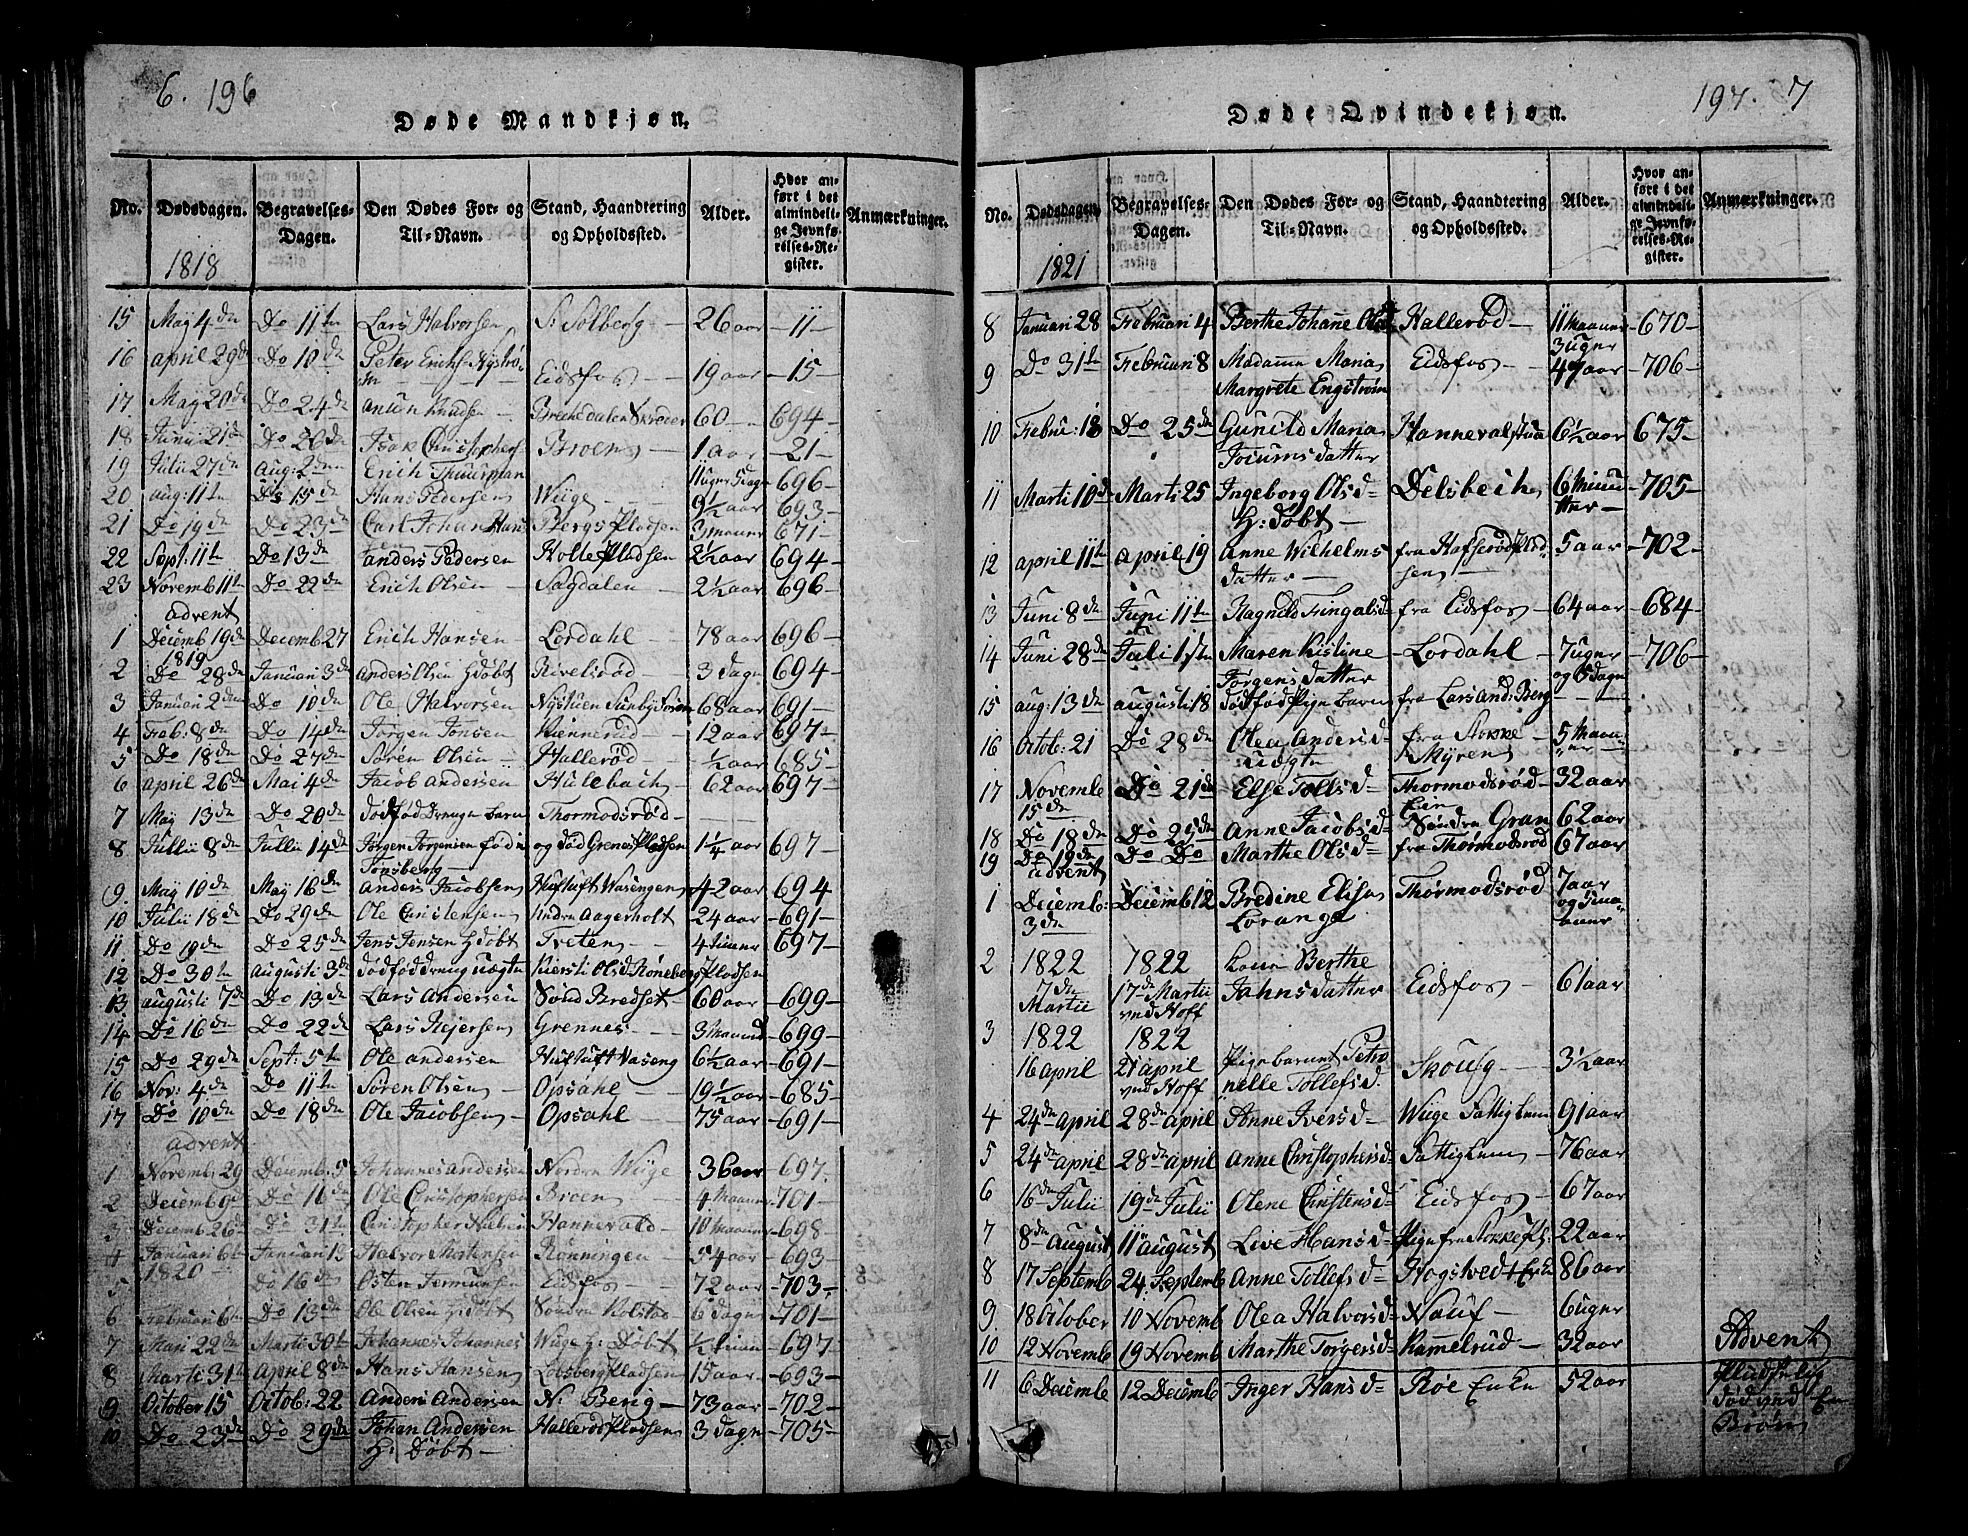 6. 196
Døde Mandkjøn.
No. Dødsdagen. Begravelses-Dagen. Den Dødes For- og Til-Navn. Stand, Haandtering og Opholdssted. Alder. Hvor anført i det almindelige Jevnførelses-Register. Anmærkninger.
1818
15 May 4de Do 11te Lars Halvorsen S: Solberg 26 aar -11-
16 april 29de Do 10de Peter Erichs: Nystrøm Eidsfos 19 aar -15-
17. May 20de Do 24de Knudsen 60 694-
18 Junii 21de Do 26de Isak Christophers: Broen 1 aar -21-
19 Julii 27de aug: 2den Erich Thuurman 11 uger 5 dage 696-
20 aug: 11te Do 15de Hans Pedersen Wiige 9½ aar 693-
21 Do 19de Do 23de Carl Johan Hans Bergs Pladsen 3 maaner 671-
22 Sept: 11te Do 13de anders Pedersen Holle Pladsen 2½ aar 694-
23 Novemb 11te Do 22de Erich Olsen Sagdalen 2½ aar 696-
advent
1 Decemb 19de Decemb 27 Erich Hansen Lordahl 78 aar 696-
1819
2 Do 28de Januari 3de Anders Olsen Hdøbt Rivelsrød 3 dage 694-
3 Januari 2den Do 10de Ole Halvorsen Nystuen 68 aar 691-
4 Feb: 8de Do 14de Jørgen Jonsen Kiennerud 12 aar 697-
5 Do 18de Do 27de Søren Olsen Hallerød ½ aar 685-
6 april 26de Mai 4de Jacob Andersen Hulebach 62 aar 697-
7 May 13de Do 20de dødfød Drenge barn Thormodsrød
8 Julii 8de Julii 14de Jørgen Jørgensen fød i og død Grenes Pladsen 1¼ aar 697-
Tønsberg
9. May 10de May 16de Anders Jacobsen Huftuft Wasengen 42 aar 694
10 Julii 18de Do 29de Ole Christensen Søndre Aagerholt 24 aar 691-
11. Do 19de Do 25de Jens Jensen Hdøbt Tveten 4 timer 697-
12 Do 30te Augusti 3de dødfød dreng uægte Kiersti Olsd Røneberg Pladsen
13. augusti 7de Do 13de Lars Andersen Sønd Bredset 60 aar -699-
14. Do 16de Do 22de Lars Reiersen Grennes 3 Maaned -699-
15 Do 29de Sept: 5te Ole andersen Huftuft Vaseng 6½ aar -691-
16 Nov: 4de Do 11te Søren Olsen Opsahl 19½ aar -685-
17 Do 10de Do 18de Ole Jacobsen Opsahl 75 aar -691-
advent
1 Novemb: 29 Decemb: 5 Johannes andersen Nordre Wiige 36 aar -697-
2 Decemb 9de Do 16de Ole Christophersen Broen 4 Maaner -701-
3 Decemb 26de Do 31te Christopher Nielsen Hannevald 10 Maaner -698-
4 Januari 6te Januari 13 Halvor Mortensen Rønningen 54 aar -693-
1820
5 Do 16de Østen Eidsfos 72 aar -703-
6 Februari 6te Do 13de Ole Olsen Hdøbt Søndre 6 dage -701-
7 Marti 22de Marti 30te Johannes Johannes Wiige H: Døbt ½ time -697-
8 Marti 31te April 8de Hans Hansen Løesberg Pladsen 15 aar -693-
9. October 15 Octob: 22 Anders Andersen N: Berig 73 aar -702-
10 Do 23de Do 29de Johan Andersen Hallerød Pladsen 3 dage -705-
H: Døbt
197. 7
Døde Qvindekjøn.
No. Dødsdagen. Begravelses-Dagen. Den Dødes For- og Til-Navn. Stand, Haandtering og Opholdssted. Alder. Hvor anført i det almindelige Jevnførelses-Register. Anmærkninger.
1821
8 Januari 28 Februari 4 Berthe Johanne Olsd Hallerød 11 Maaner -670-
3 uger
9 Do 31te Februari 8 Madamme Maria Eidsfos 47 aar -706-
Margrete Engstrøm
10 Febru: 18 Do 25de Gunild Maria Hannevalstua 6½ aar 675-
Jocumsdatter
11 Marti 10de Marti 25 Ingeborg Olsd Delsbech 6 Minu -705-
H: døbt tter
12 april 11te april 19 Anne Wilhelms fra Hafserød Plad 5 aar -702-
datter sen
13 Juni 8de Juni 11te Ragnild Fingalsd fra Eidsfos 64 aar -684-
14 Juni 28de Juli 1te Maren Kistine Lordahl 7 uger -706-
Jørgensdatter og 6 dage
15 aug: 13de augusti 18 dødfød Pigebarn fra Lars and: Berg
16 Octob: 21 Do 28de Olea Andersd fra Stokke 5 Maa
uægte Myren ner
17 Novemb Do 21de Else Tollsd Thormodsrød 32 aar
15de Eie
18 Do 18de Do 25de Anne Jacobsd Søndre Gran 62 aar
19 Do 19de Do Do Marthe Olsd fra Thormodsrød 67 aar
advent
1 Decemb: Decemb 12 Bredine Elisa Thormodsrød 7 aar
3de Lorange og 9 maaner
2 1822 1822 kone Berthe
7de 17de Martii Jahnsdatter Eidsfos 61 aar
Martii ved Hoff
3 1822 1822
16 april 21 april Pigebarnet Petro Skoug 3½ aar
ved Hoff nelle Tollefsd.
4 24de april 28de april Anne Iversd Wiige Fattiglem 91 aar
5 24de april 28de april Anne Christophersd Fattiglem 76 aar
6 16de Julii 19de Julii Olene Christensd Eidsfos 67 aar
7 8de August 11te august Live Hansd Pige fra Stokke Pl: 22 aar
8 17 Septemb 24. Septemb Anne Tollefsd Hogsved Enke 86 aar
9. 18 October 10 Novemb Olea Halvorsd Nauf 6 uger
10 12 Novemb 19 Novemb Marthe Torgersd Ramelrud 32 aar Advent
11 6 Decemb 12 Decemb Inger Hansd Røe Enke 52 aar Pludselig
død ved En
Brøns